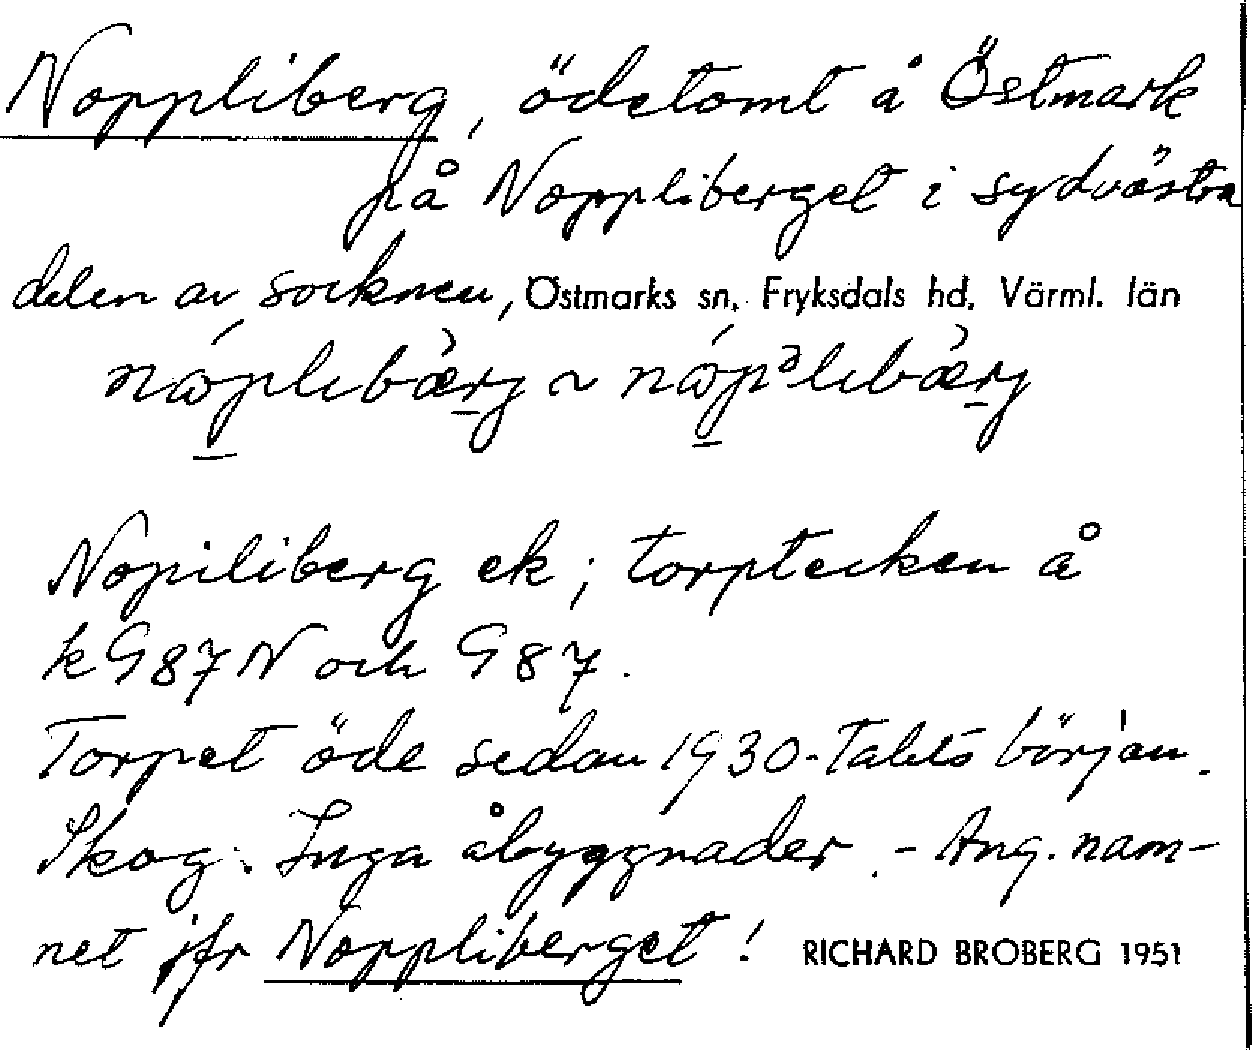 Noppliberg, ödetomt å Östmark
på Noppliberget i sydvästra
delen av socknen, Östmarks sn. Fryksdals hd, Värml. län
Nopiliberg ek; torptecken å
k G 87 N och G 87.
Torpet öde sedan 1930-talets början.
Skog. Inga åbyggnader. - Ang. nam-
net jfr Noppliberget! RICHARD BROBERG 1951